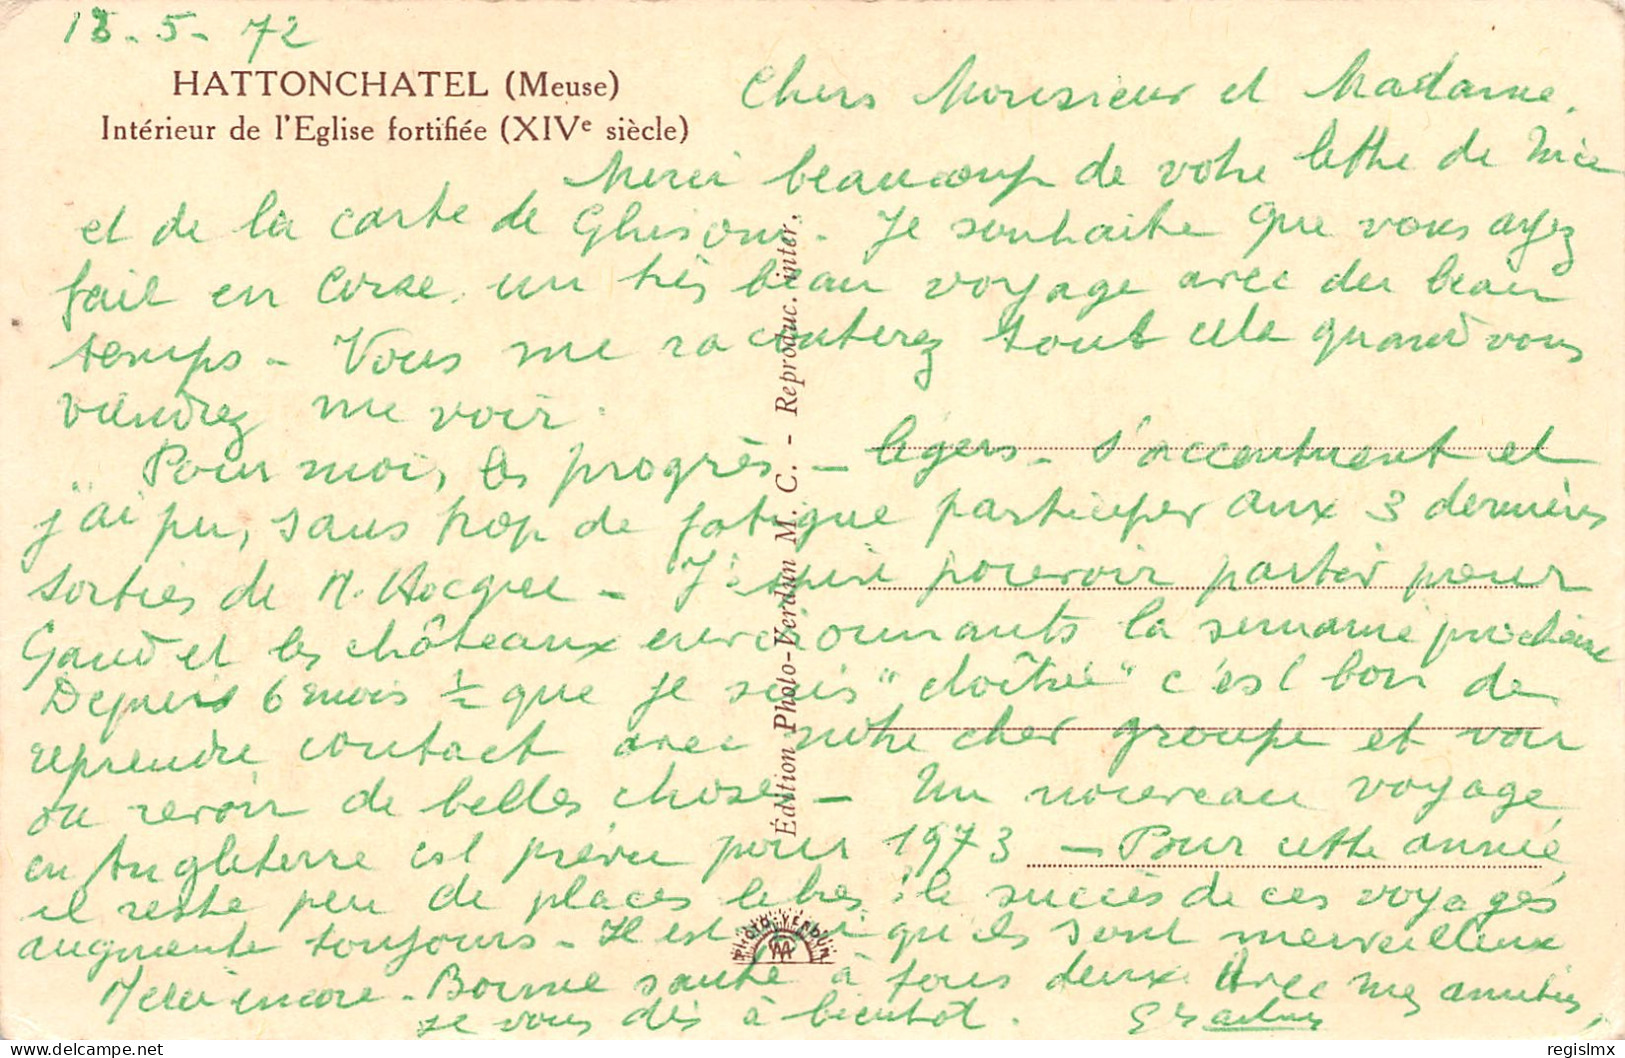 18-5-72
HATTONCHATEL (Meuse)
Intérieur de l'Eglise fortifiée (XIVe siècle)
Chers Monsieur et Madame,
Merci beaucoup de votre lettre de Nice
et de la carte de Ghisoni. Je souhaite que vous ayez
fait en Corse un très beau voyage avec du beau
temps - Vous me raconterez tout cela quand vous
viendrez me voir.
Pour moi, les progrès - légers - s'accentuent et
j'ai pu, sans trop de fatigue participer aux 3 dernières
sorties de M. Hocquel - J'espère pouvoir partir pour
Gand et les châteaux environnants la semaine prochaine
Depuis 6 mois ½ que je suis "cloîtrée" c'est bon de
reprendre contact avec notre cher groupe et voir
ou revoir de belles choses - Un nouveau voyage
en Angleterre est prévu pour 1973 - Pour cette année,
il reste peu de places libres : le succès de ces voyages
augmente toujours - Il est vrai qu'ils sont merveilleux
Merci encore - Bonne santé à tous deux. Avec mes amitiés,
je vous dis à bientôt.
Édition Photo-Verdun M. C. - Reproduc. inter.
PHOTO-VERDUN
MC
regislmx
delcampe.net